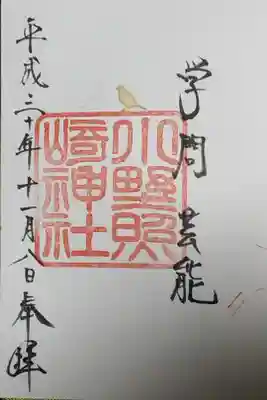 学問 芸能
小野照
崎神社
平成三十年十一月八日奉拝